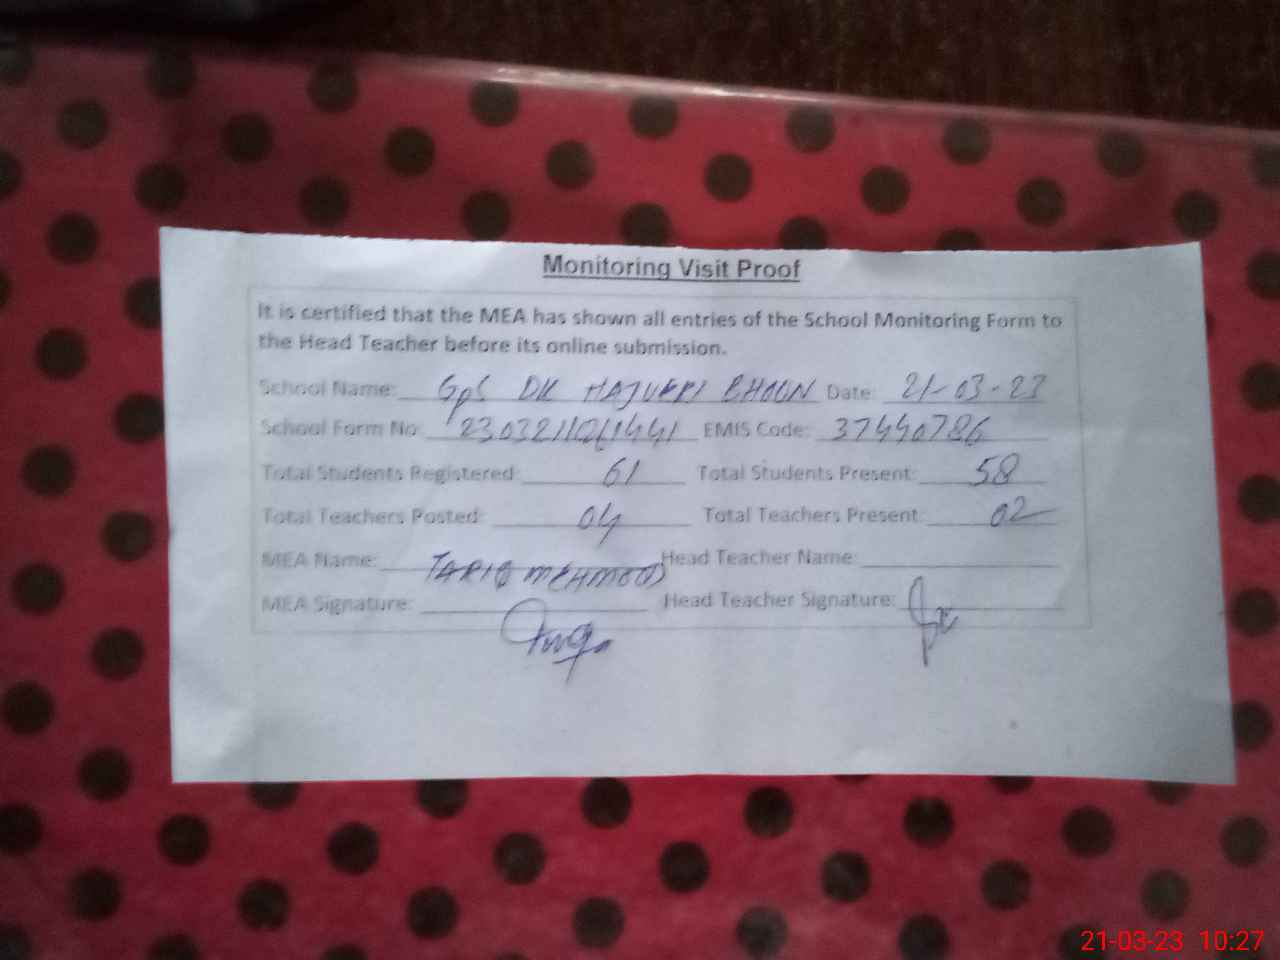 Monitoring Visit Proof
It is certified that the MEA has shown all entries of the School Monitoring Form to
the Head Teacher before its online submission.
School Name: GPS DK HAJVERI BHOUN Date: 21-03-23
School Form No: EMIS Code: 37440786
Total Students Registered: 61 Total Students Present: 58
Total Teachers Posted: 04 Total Teachers Present: 02
MEA Name: TARIQ MEHMOOD Head Teacher Name:
MEA Signature: Head Teacher Signature:
21-03-23 10:27